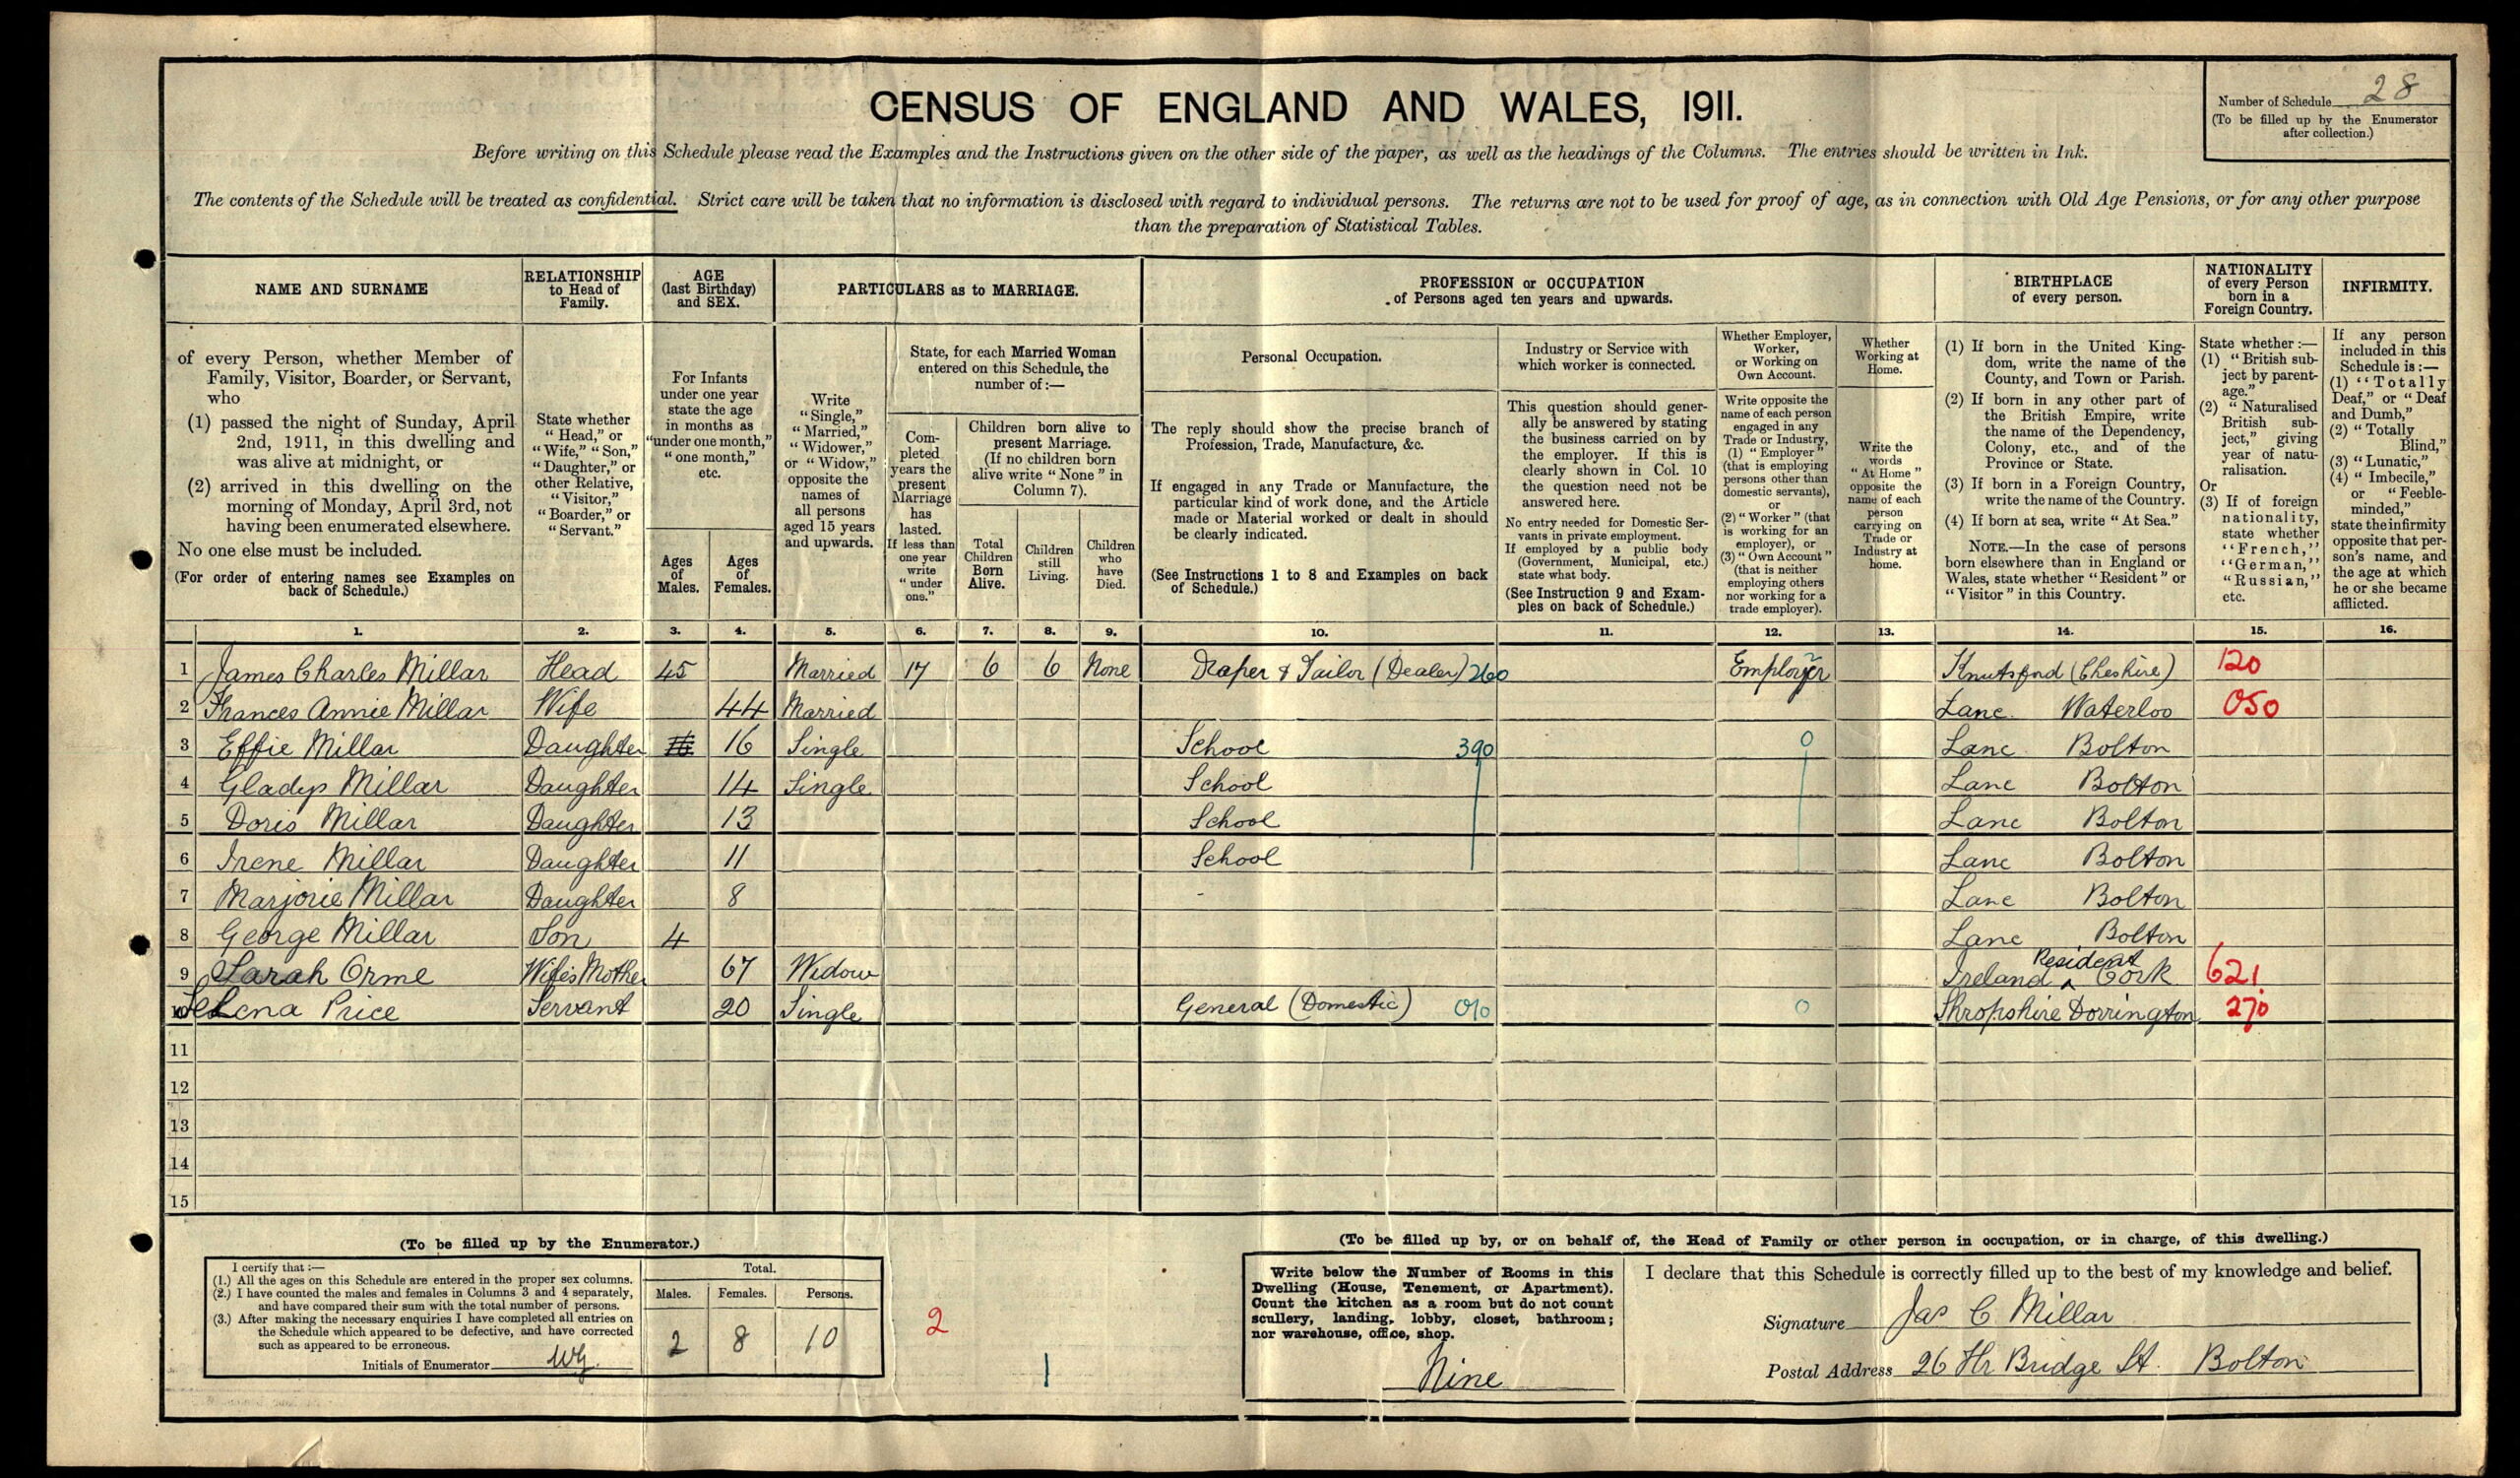 CENSUS OF ENGLAND AND WALES, 1911.
Number of Schedule 28
(To be filled up by the Enumerator
after collection.)
Before writing on this Schedule please read the Examples and the Instructions given on the other side of the paper, as well as the headings of the Columns. The entries should be written in Ink.
The contents of the Schedule will be treated as confidential. Strict care will be taken that no information is disclosed with regard to individual persons. The returns are not to be used for proof of age, as in connection with Old Age Pensions, or for any other purpose
than the preparation of Statistical Tables.
NAME AND SURNAME
RELATIONSHIP
to Head of
Family.
AGE
(last Birthday)
and SEX.
PARTICULARS as to MARRIAGE.
PROFESSION or OCCUPATION
of Persons aged ten years and upwards.
BIRTHPLACE
of every person.
NATIONALITY
of every Person
born in a
Foreign Country.
INFIRMITY.
of every Person, whether Member of
Family, Visitor, Boarder, or Servant,
who
(1) passed the night of Sunday, April
2nd, 1911, in this dwelling and
was alive at midnight, or
(2) arrived in this dwelling on the
morning of Monday, April 3rd, not
having been enumerated elsewhere.
No one else must be included.
(For order of entering names see Examples on
back of Schedule.)
State whether
"Head," or
"Wife," "Son,"
"Daughter," or
other Relative,
"Visitor,"
"Boarder," or
"Servant."
For Infants
under one year
state the age
in months as
"under one month,"
"one month,"
etc.
Ages
of
Males.
Ages
of
Females.
Write
"Single,"
"Married,"
"Widower,"
or "Widow,"
opposite the
names of
all persons
aged 15 years
and upwards.
State, for each Married Woman
entered on this Schedule, the
number of:—
Com-
pleted
years the
present
Marriage
has
lasted.
If less than
one year
write
"under
one."
Children born alive to
present Marriage.
(If no children born
alive write "None" in
Column 7).
Total
Children
Born
Alive.
Children
still
Living.
Children
who
have
Died.
Personal Occupation.
The reply should show the precise branch of
Profession, Trade, Manufacture, &c.
If engaged in any Trade or Manufacture, the
particular kind of work done, and the Article
made or Material worked or dealt in should
be clearly indicated.
(See Instructions 1 to 8 and Examples on back
of Schedule.)
Industry or Service with
which worker is connected.
This question should gener-
ally be answered by stating
the business carried on by
the employer. If this is
clearly shown in Col. 10
the question need not be
answered here.
No entry needed for Domestic Ser-
vants in private employment.
If employed by a public body
(Government, Municipal, etc.)
state what body.
(See Instruction 9 and Exam-
ples on back of Schedule.)
Whether Employer,
Worker,
or Working on
Own Account.
Write opposite the
name of each person
engaged in any
Trade or Industry,
(1) "Employer"
(that is employing
persons other than
domestic servants),
or
(2) "Worker" (that
is working for an
employer), or
(3) "Own Account"
(that is neither
employing others
nor working for a
trade employer).
Whether
Working at
Home.
Write the
words
"At Home"
opposite the
name of each
person
carrying on
Trade or
Industry at
home.
(1) If born in the United King-
dom, write the name of the
County, and Town or Parish.
(2) If born in any other part of
the British Empire, write
the name of the Dependency,
Colony, etc., and of the
Province or State.
(3) If born in a Foreign Country,
write the name of the Country.
(4) If born at sea, write "At Sea."
NOTE.—In the case of persons
born elsewhere than in England or
Wales, state whether "Resident" or
"Visitor" in this Country.
State whether:—
(1) "British sub-
ject by parent-
age."
(2) "Naturalised
British sub-
ject," giving
year of natu-
ralisation.
Or
(3) If of foreign
nationality,
state whether
"French,"
"German,"
"Russian,"
etc.
If any person
included in this
Schedule is:—
(1) "Totally
Deaf," or "Deaf
and Dumb,"
(2) "Totally
Blind,"
(3) "Lunatic,"
(4) "Imbecile,"
or "Feeble-
minded,"
state the infirmity
opposite that per-
son's name, and
the age at which
he or she became
afflicted.
1. 2. 3. 4. 5. 6. 7. 8. 9. 10. 11. 12. 13. 14. 15. 16.
1 James Charles Millar Head 45 Married 17 6 6 None Draper & Tailor (Dealer) 260 Employer Knutsford (Cheshire) 120
2 Frances Annie Millar Wife 44 Married Lanc. Waterloo 050
3 Effie Millar Daughter 16 16 Single School 390 0 Lanc Bolton
4 Gladys Millar Daughter 14 Single School Lanc Bolton
5 Doris Millar Daughter 13 School Lanc Bolton
6 Irene Millar Daughter 11 School Lanc Bolton
7 Marjorie Millar Daughter 8 - Lanc Bolton
8 George Millar Son 4 Lanc Bolton
9 Sarah Orme Wife's Mother 67 Widow Ireland Resident Cork 621
10 Selena Price Servant 20 Single General (Domestic) 010 0 Shropshire Dorrington 270
11
12
13
14
15
(To be filled up by the Enumerator.)
I certify that:—
(1.) All the ages on this Schedule are entered in the proper sex columns.
(2.) I have counted the males and females in Columns 3 and 4 separately,
and have compared their sum with the total number of persons.
(3.) After making the necessary enquiries I have completed all entries on
the Schedule which appeared to be defective, and have corrected
such as appeared to be erroneous.
Initials of Enumerator WG.
Total.
Males. Females. Persons.
2 8 10
2
1
(To be filled up by, or on behalf of, the Head of Family or other person in occupation, or in charge, of this dwelling.)
Write below the Number of Rooms in this
Dwelling (House, Tenement, or Apartment).
Count the kitchen as a room but do not count
scullery, landing, lobby, closet, bathroom;
nor warehouse, office, shop.
Nine
I declare that this Schedule is correctly filled up to the best of my knowledge and belief.
Signature Jas C Millar
Postal Address 26 Hr Bridge St. Bolton